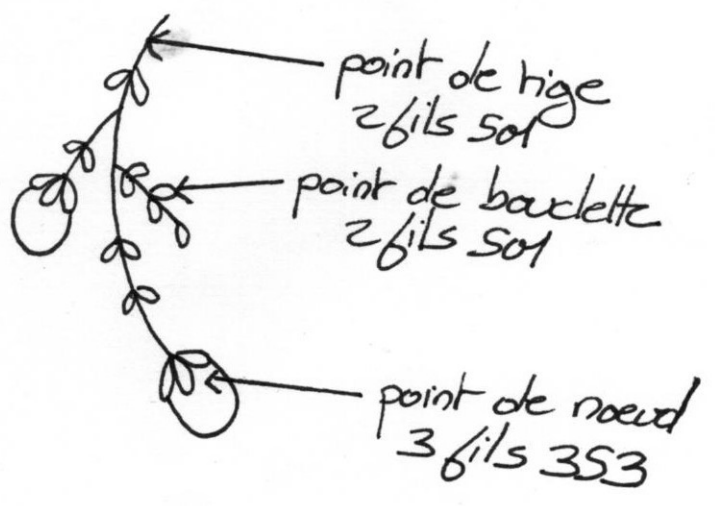 point de tige
2 fils 501
point de bouclette
2 fils 501
point de noeud
3 fils 353